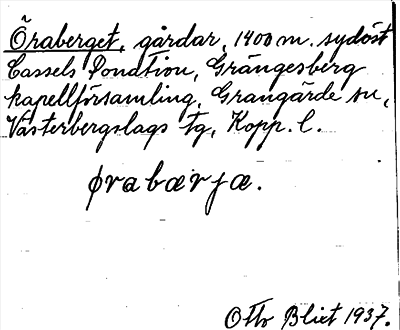 Öraberget, gårdar, 1400 m. sydöst
Cassels Donation, Grängesberg
kapellförsamling, Grangärde sn,
Västerbergslags tg, Kopp. l.
ørabærjæ.
Otto Blixt 1937.